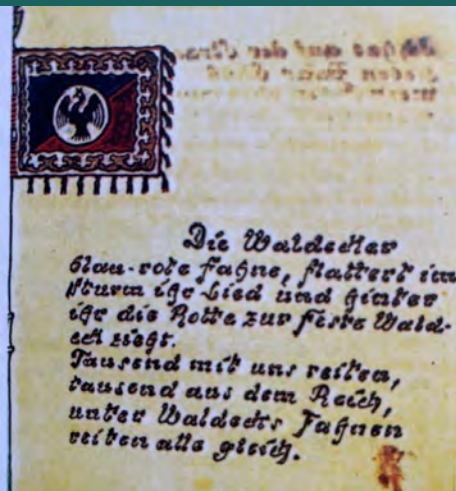 Die Waldecker
blau-rote Fahne, flattert im
Sturm ihr Lied und hinter
ihr die Rotte zur Feste Wald-
eck zieht.
Tausend mit uns reiten,
tausend aus dem Reich,
unter Waldecks Fahnen
reiten alle gleich.